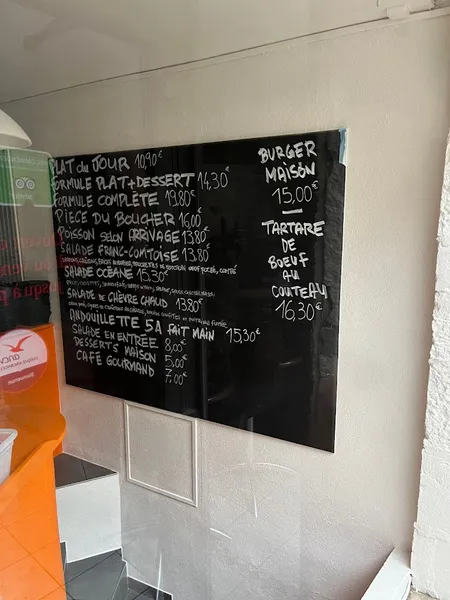 PLAT du JOUR 10,90€
FORMULE PLAT+DESSERT 14,30€
FORMULE COMPLÈTE 19.80€
PIÈCE DU BOUCHER 16,00€
POISSON SELON ARRIVAGE 13.80€
SALADE FRANC-COMTOISE 13.80€
SALADE OCÉANE 15.30€
SALADE DE CHÈVRE CHAUD 13.80€
ANDOUILLETTE 5A FAIT MAIN 15,30€
SALADE EN ENTRÉE 8,00€
DESSERTS MAISON 5,00€
CAFÉ GOURMAND 7,00€
BURGER
MAISON
15,00€
TARTARE
DE
BOEUF
AU
COUTEAU
16,30€
ancv